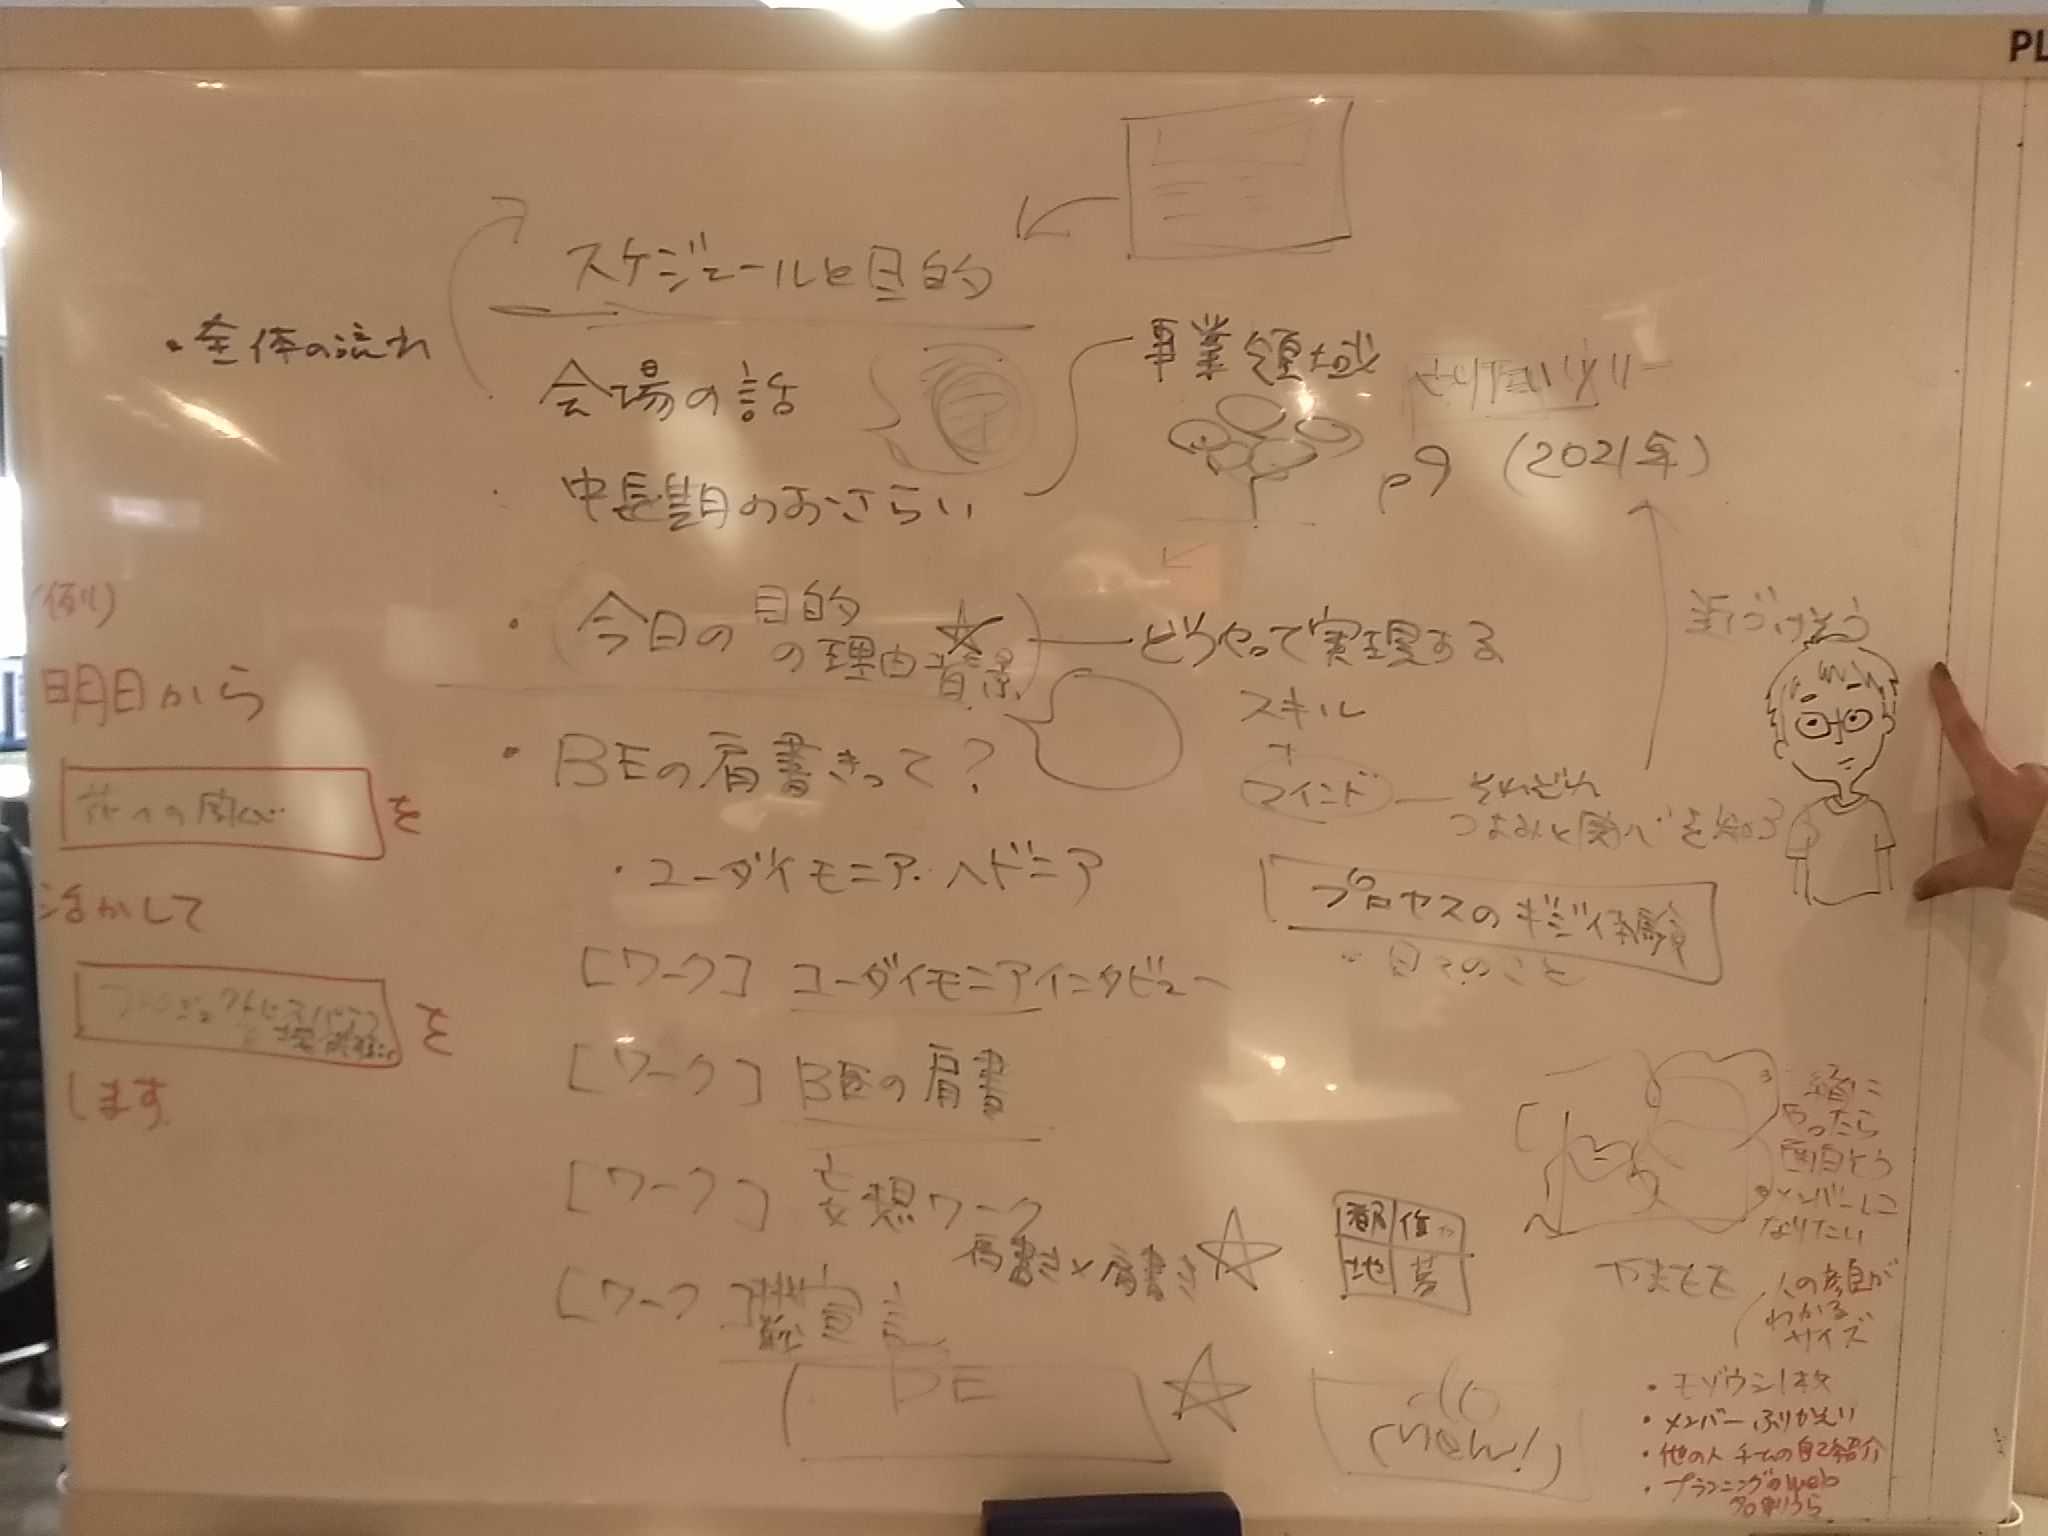 PL
スケジュールと目的
・全体の流れ
会場の話
中長期のおさらい
事業領域
p9 (2021年)
・今日の目的
の理由 背景
どうやって実現する
スキル
+
マインド
それぞれ
近づけそう
・BEの肩書きって?
・ユーダイモニア・ヘドニア
プロセスのギジ体験
・日々のこと
[ワーク] ユーダイモニアインタビュー
[ワーク] BEの肩書
[ワーク] 妄想ワーク
肩書き×肩書き
[ワーク] 宣言
BE
do
(new!)
(例)
明日から
を
活かして
を
します
やったら
面白そう
メンバーに
なりたい
人の顔が
わかる
サイズ
・モゾウシ1枚
・メンバーふりかえり
・他の人チームの自己紹介
・プランニングのweb